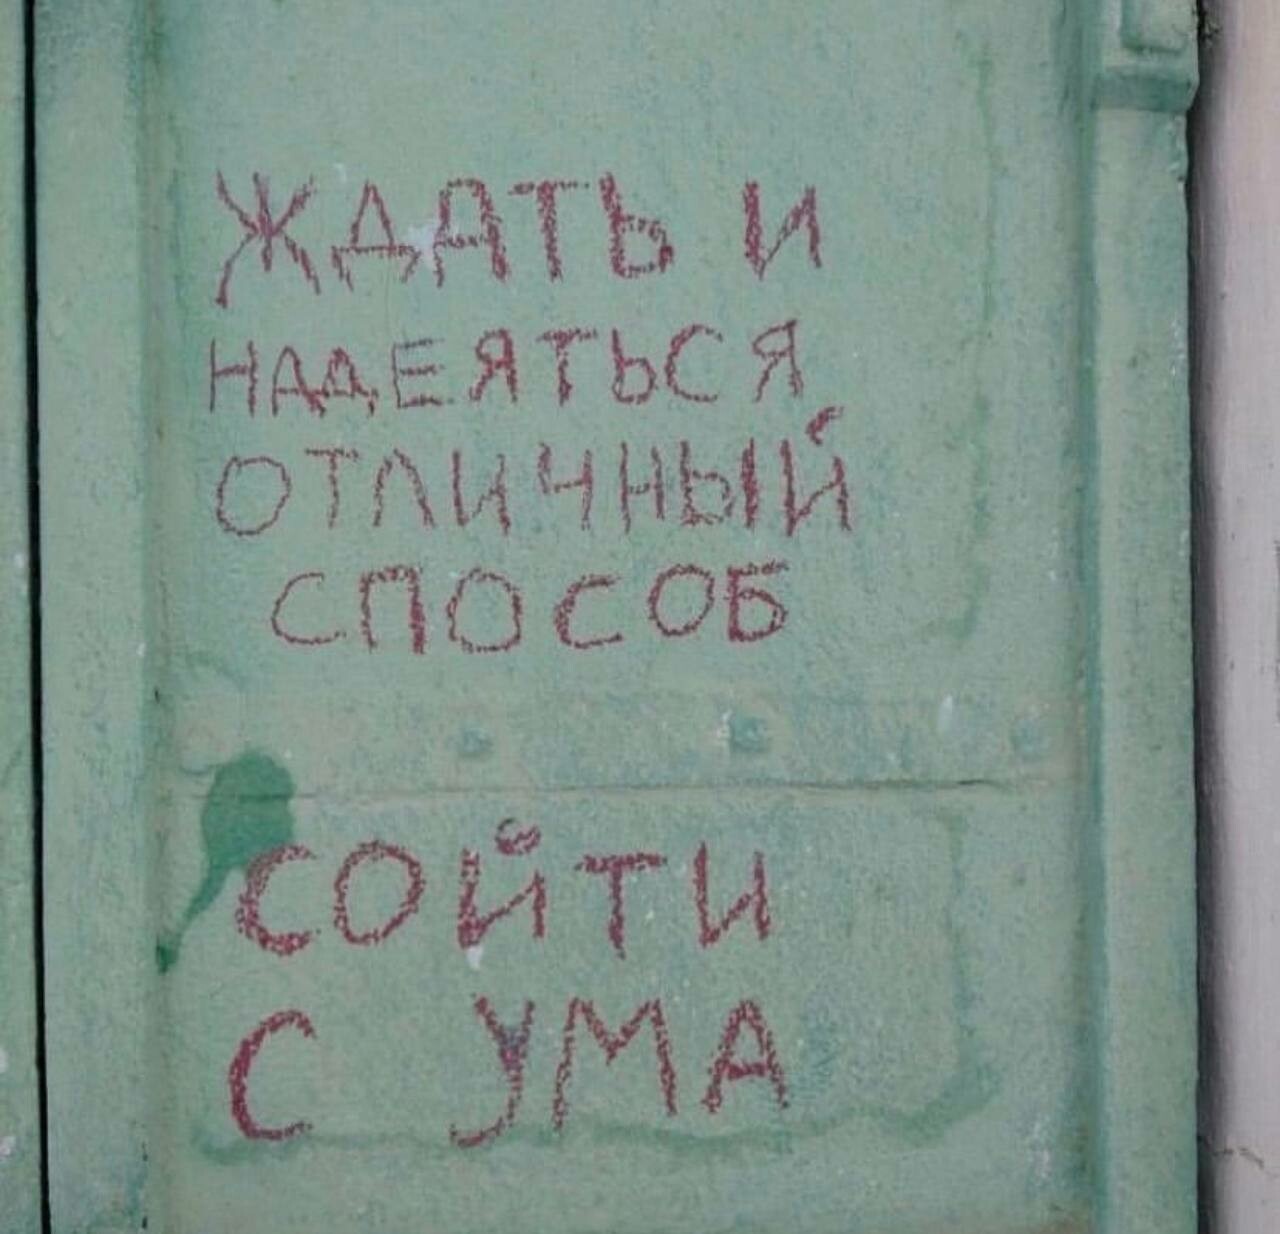 ЖДАТЬ И
НАДЕЯТЬСЯ
ОТЛИЧНЫЙ
СПОСОБ
СОЙТИ
С УМА